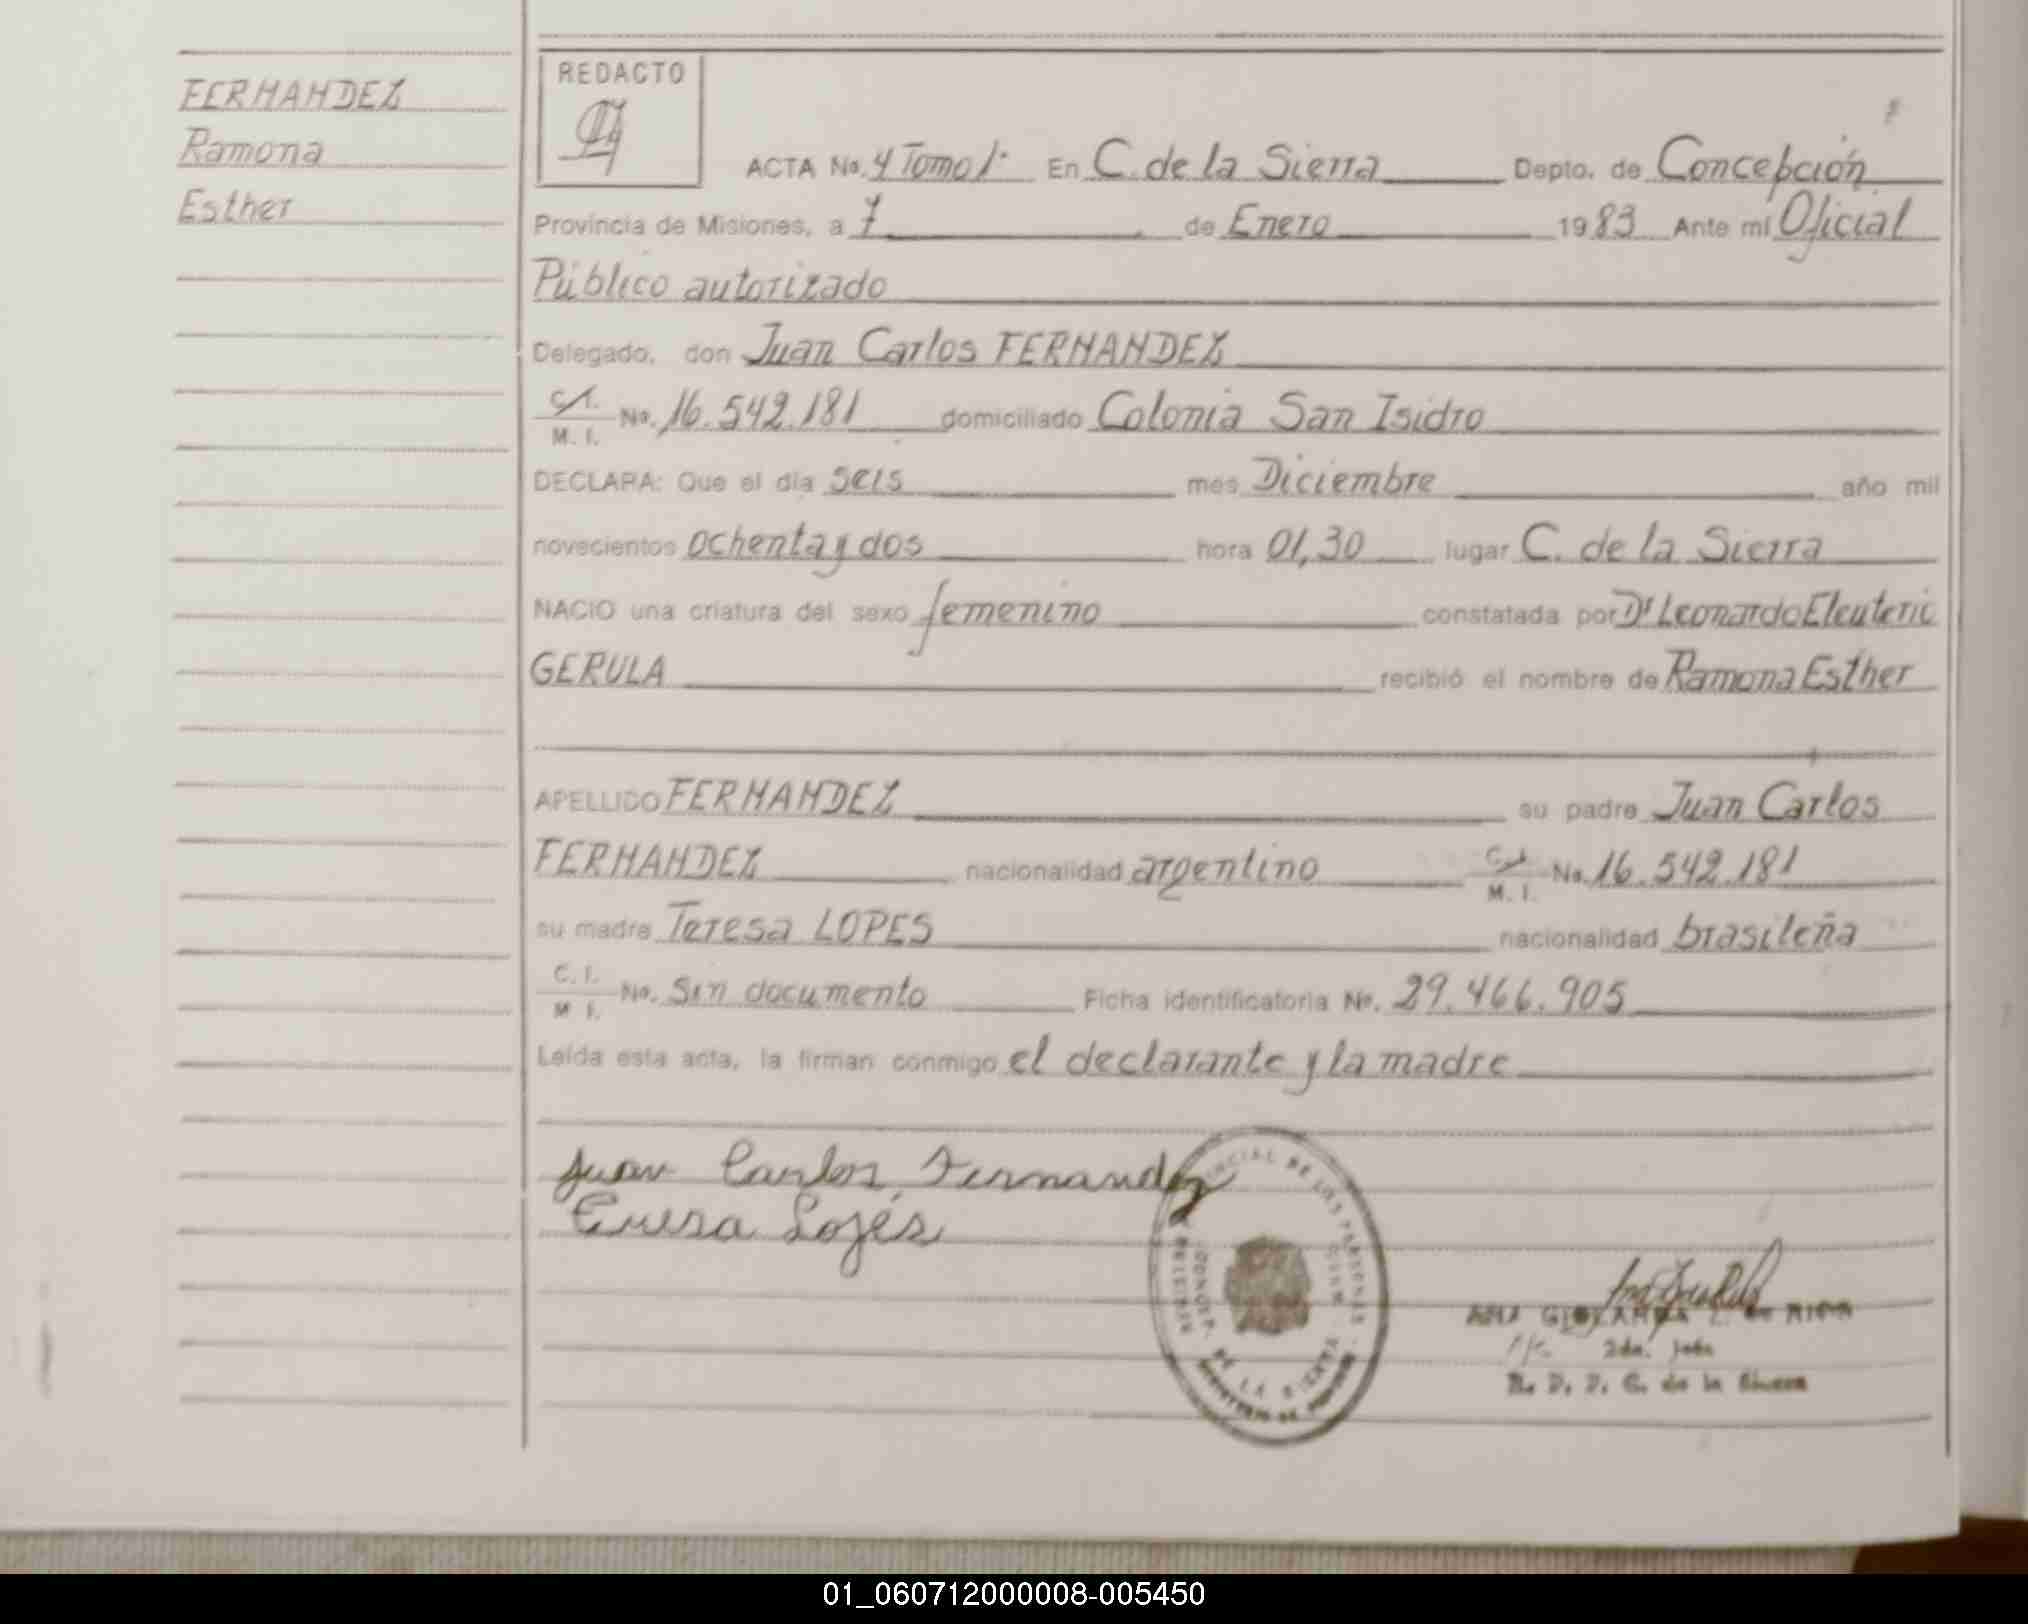 FERNANDEZ
Ramona
Esther
REDACTO
ACTA No. 4 Tomo 1º En C. de la Sierra Depto. de Concepción
Provincia de Misiones, a 7 de Enero 1983 Ante mí Oficial
Público autorizado
Delegado, don Juan Carlos FERNANDEZ
C.I. M. I. No. 16.542.181 domiciliado Colonia San Isidro
DECLARA: Que el día seis mes Diciembre año mil
novecientos ochenta y dos hora 01,30 lugar C. de la Sierra
NACIO una criatura del sexo femenino constatada por Dr Leonardo Eleuterio
GERULA recibió el nombre de Ramona Esther
APELLIDO FERNANDEZ su padre Juan Carlos
FERNANDEZ nacionalidad argentino C.I. M. I. No. 16.542.181
su madre Teresa LOPES nacionalidad brasileña
C. I. M I. No. Sin documento Ficha identificatoria No. 29.466.905
Leída esta acta, la firman conmigo el declarante y la madre
Juan Carlos Fernandez
DE LOS PERSONAS
DE LA SIERRA
ANA
DE RIOS
2da. Jefe
R. P. P. C. de la Sierra
01_060712000008-005450